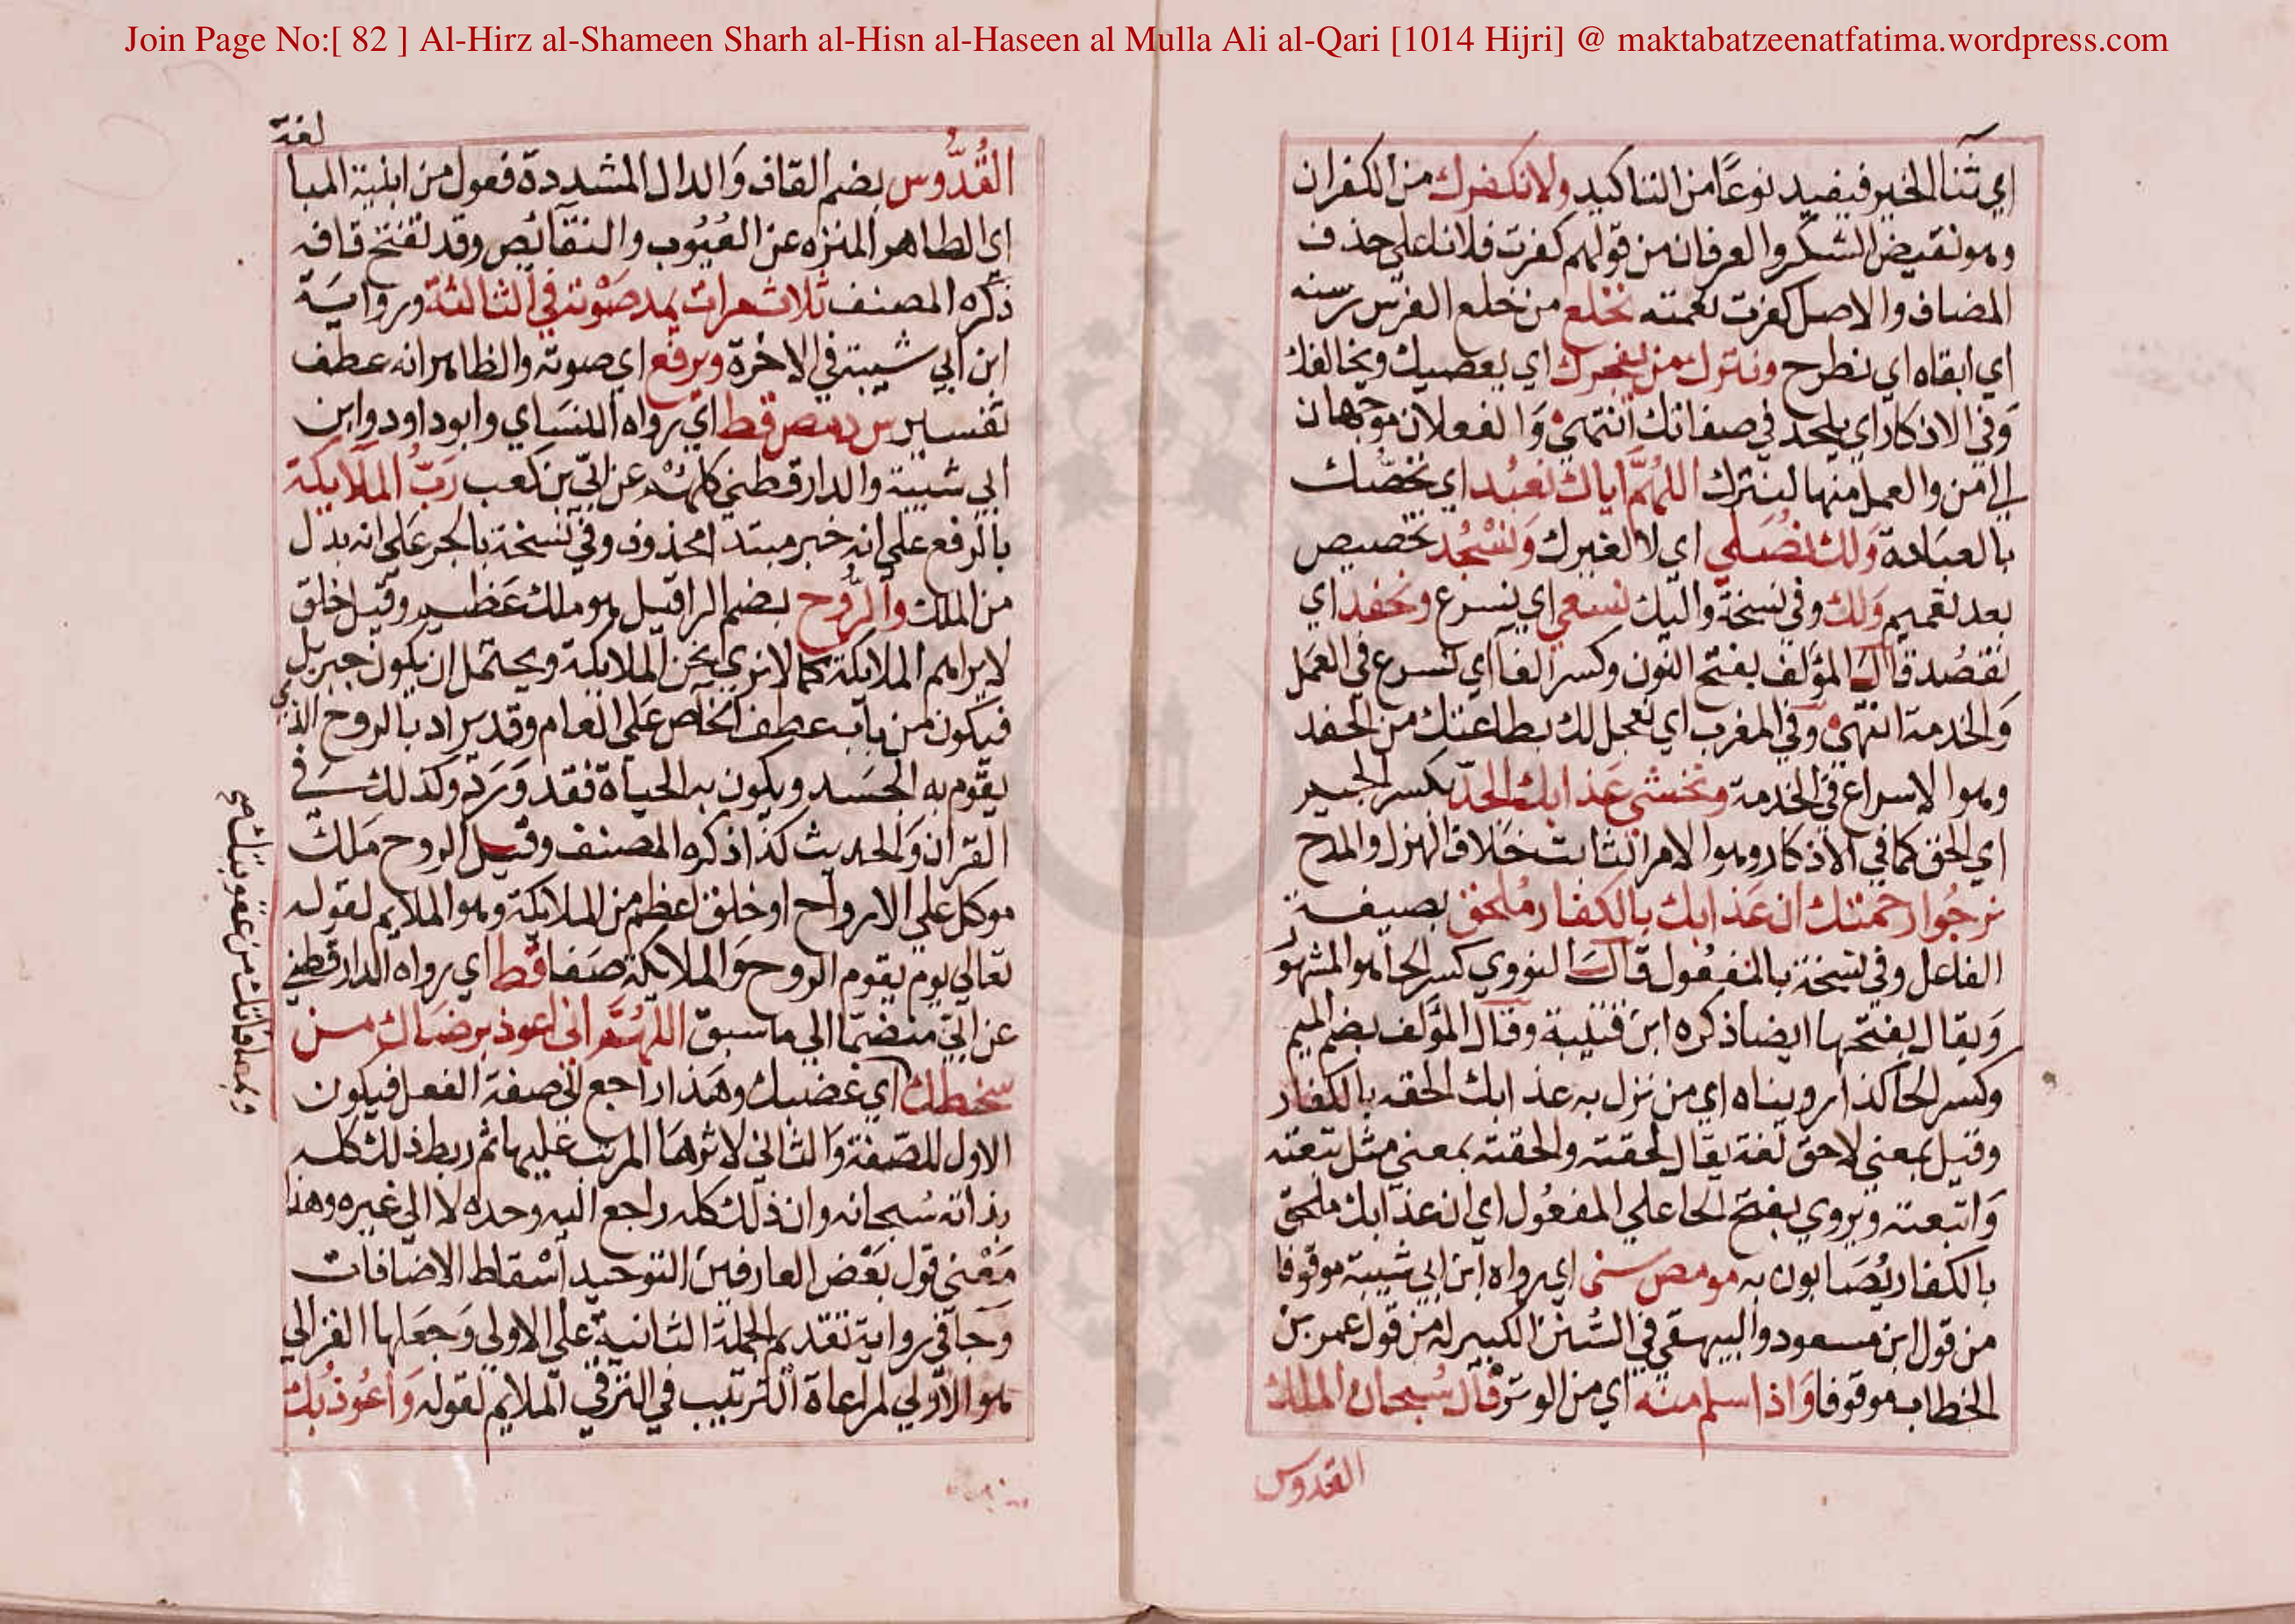 Join Page No:[ 82 ] Al-Hirz al-Shameen Sharh al-Hisn al-Haseen al Mulla Ali al-Qari [1014 Hijri] @ maktabatzeenatfatima.wordpress.com
اي ثنا الخير فيفيد نوعًا من التاكيد ولا نكفرك من الكفران
وهو نقيض الشكر والعرفان من قولهم كفرت فلانا علي حذف
المضاف والاصل كفرت نعمته نخلع من خلع الفرس رسنه
اي ابقاه اي نطرح ونترك من يفجرك اي يعصيك ويخالفك
وَفي الاذكار اي يلحد في صفاتك انتهي وَالفعلان موجهان
الي من والعمل منهما لنترك اللهُمَّ اياك نعبُد اي نخصّك
بالعبَادة وَلك نصَلي اي لا لغيرك وَنسْجُد تخصيص
بعد تعميم وَلك وفي نسخة واليك نسعي اي نسرع ونحفد اي
نقصُد قال المؤلف بفتح النون وكسر الفا اي نسرع في العمَل
وَالخدمة انتهي وفي المغرب اي نعمل لك بطاعتك من الحفد
وهو الاسراع في الخدمة ونخشي عَذابك الجدّ بكسر الجيم
اي الحق كما في الاذكار وهو الامر الثابت خلاف الهزل والمزح
نرجُوا رحمتك ان عَذابك بالكفار مُلحق بصيغة
الفاعل وفي نسخة بالمفعُول قال النووي كسر الحا هو المشهوُر
وَيقال بفتحها ايضا ذكره ابن قتيبة وقال المؤلف بضم الميم
وكسر الحا كذا رويناه اي من نزل به عذابك الحقه بالكفار
وقيل بمعني لاحق لغة يقال لحقته والحقته بمعني مثل تبعته
وَاتبعته ويروي بفتح الحا علي المفعُول اي ان عذابك ملحق
بالكفار يُصَابون به مو مص سني اي رواه ابن ابي شيبة موقوفا
من قول ابن مسعود والبيهقي في السُّنن الكبير له من قول عمر بن
الخطاب موقوفا وَاذا سلم منه اي من الوتر قال سُبحان الملك
القدوس
لغة
القُدُّوس بضم القاف وَالدال المشددة فعول من ابنية المبا
اي الطاهر المنزه عن العيُوب والنقائص وقد تفتح قافه
ذكره المصنف ثلاث مرات يمد صَوته في الثالثة ورواية
ابن ابي شيبة في الاخرة ويرفع اي صوته والظاهر انه عطف
تفسير س د مص قط اي رواه النسَاي وابو داود وابن
ابي شيبة والدارقطني كلهمْ عن ابيّ بن كعب رَبُّ الملَايكة
بالرفع علي انه خبر مبتدا محذوف وفي نسخة بالجر عَلي انه بدل
من الملك والرُّوح بضم الرا قيل هو ملك عَظيم وقيل خلق
لا يراهم الملايكة كما لا نري نحن الملايكة ويحتمل ان يكون جبريل
فيكون من بَاب عطف الخاص عَلي العام وقد يراد بالروح الذي
يقوم به الجسَد ويكون به الحيَاة فقد وَرَد وكذلك في
القران وَالحديث كذا ذكره المصنف وقيل الروح مَلك
موكل علي الارواح او خلق اعظم من الملايكة وهو الملايم لقوله
تعالي يوم يقوم الروح وَالملايكة صَفا قط اي رواه الدارقطني
عن ابيّ منضمّا الي ما سبق اللهُمَّ اني اعوذ برضَاك من
سخطك اي غضبك وهَذا راجع الي صفة الفعل فيكون
الاول للصّفة وَالثاني لاثرهَا المرتب عليها ثم ربط ذلك كله
بذاته سُبحانه وان ذلك كله راجع اليه وحده لا الي غيره وهذا
مَعْني قول بَعْض العارفينَ التوحيد اسْقاط الاضافات
وَجا في رواية تقديم الجملة الثانية علي الاولي وَجعَلها الغزالي
هو الاولي لمراعاة الترتيب في الترقي الملايم لقوله وَاعُوذ بك
وبمعافاتك من عقوبتك صح